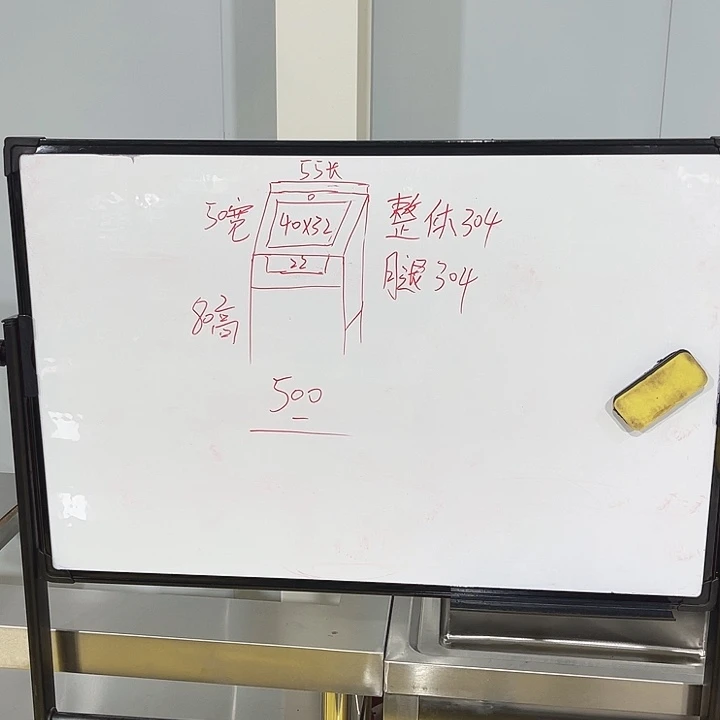 55长
50宽
40X32
22
80高
整体304
腿304
500